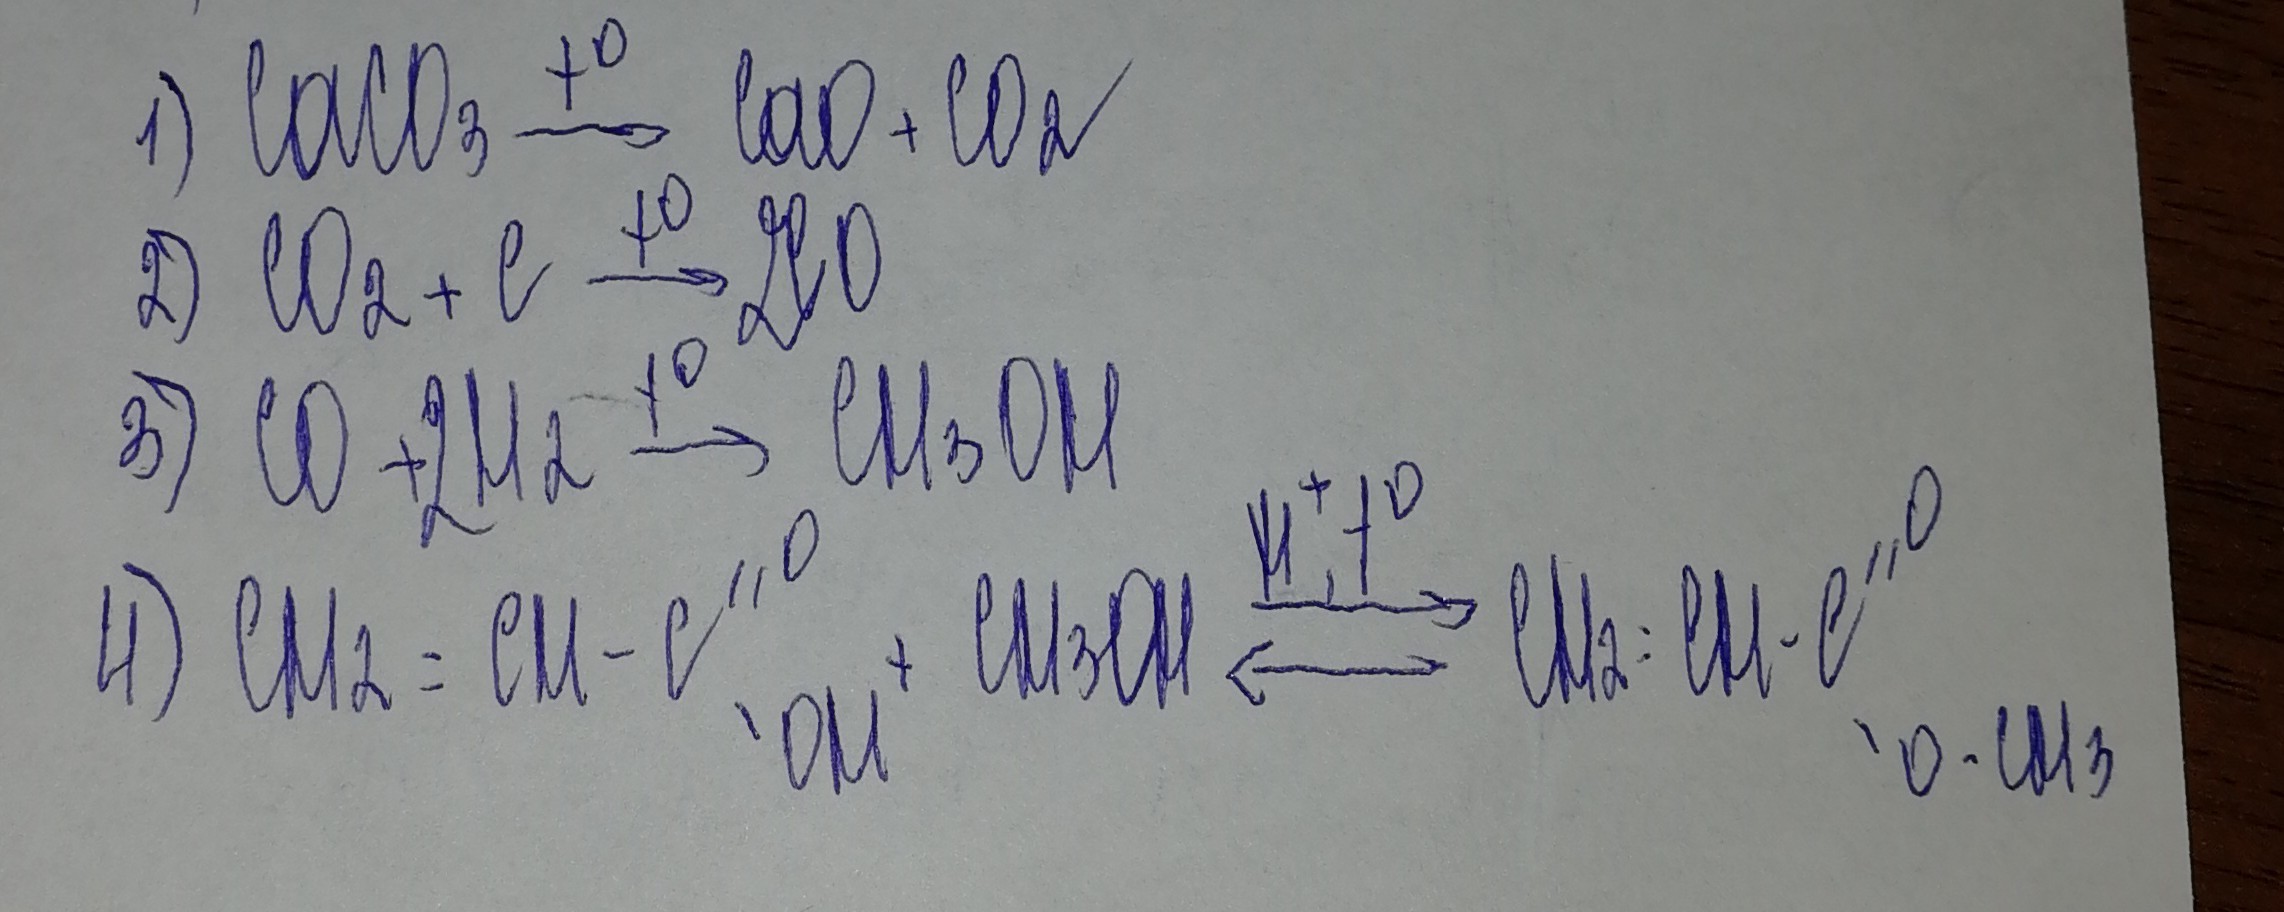 1) CaCO3 t° → CaO + CO2
2) CO2 + C t° → 2CO
3) CO + 2H2 t° → CH3OH
4) CH2 = CH - C // O \ OH + CH3OH H+, t° ⇄ CH2 = CH - C // O \ O - CH3